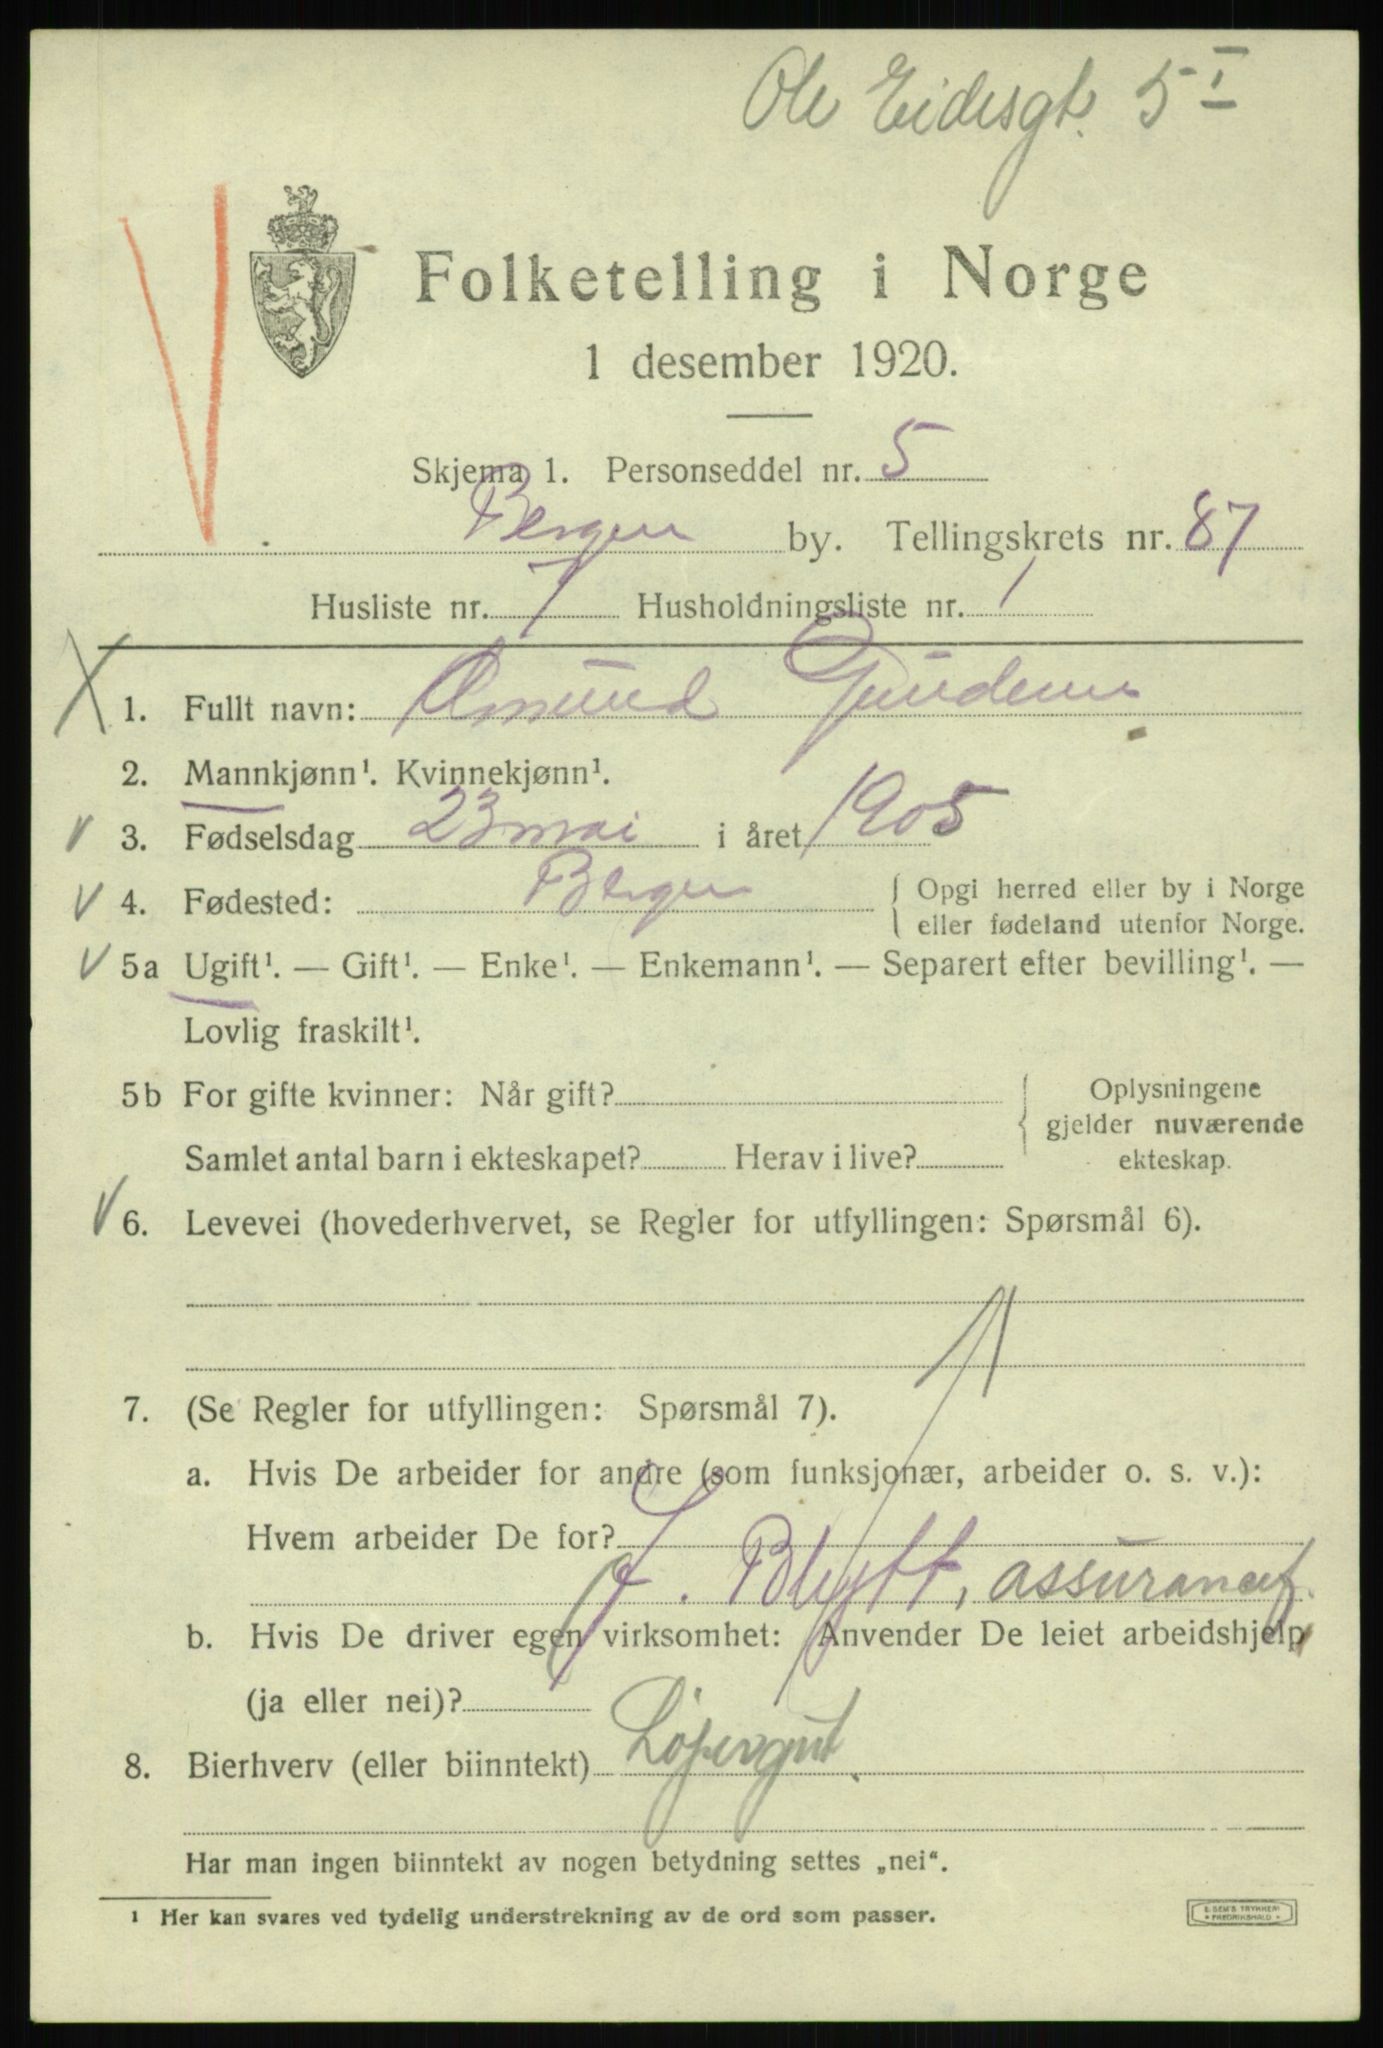 Ole Eidesgt. 5 I
Folketelling i Norge
1 desember 1920.
Skjema 1. Personseddel nr. 5
Bergen by. Tellingskrets nr. 87
Husliste nr. 7 Husholdningsliste nr. 1
1. Fullt navn: Asmund
2. Mannkjønn¹. Kvinnekjønn¹.
3. Fødselsdag 23 mai i året 1905
4. Fødested: Bergen { Opgi herred eller by i Norge
eller fødeland utenfor Norge.
5a Ugift¹. — Gift¹. — Enke¹. — Enkemann¹. — Separert efter bevilling¹. —
Lovlig fraskilt¹.
5b For gifte kvinner: Når gift? { Oplysningene
gjelder nuværende
Samlet antal barn i ekteskapet? Herav i live? ekteskap.
6. Levevei (hovederhvervet, se Regler for utfyllingen: Spørsmål 6).
7. (Se Regler for utfyllingen: Spørsmål 7).
a. Hvis De arbeider for andre (som funksjonær, arbeider o. s. v.):
Hvem arbeider De for?
J. Blytt, assurancef.
b. Hvis De driver egen virksomhet: Anvender De leiet arbeidshjelp
(ja eller nei)?
8. Bierhverv (eller biinntekt) Løpergut.
Har man ingen biinntekt av nogen betydning settes „nei“.
¹ Her kan svares ved tydelig understrekning av de ord som passer.
E. SEM'S TRYKKERI
FREDRIKSHALD